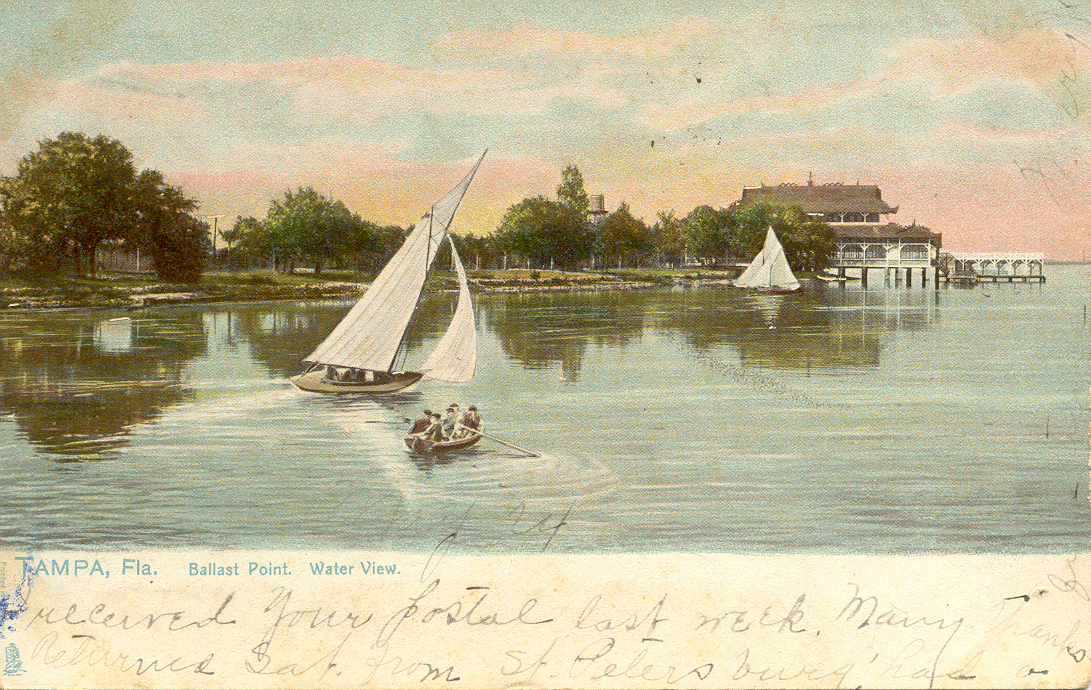 TAMPA, Fla. Ballast Point. Water View.
received Your Postal last week. Many Thanks
Returned Sat from St. Petersburg, had a